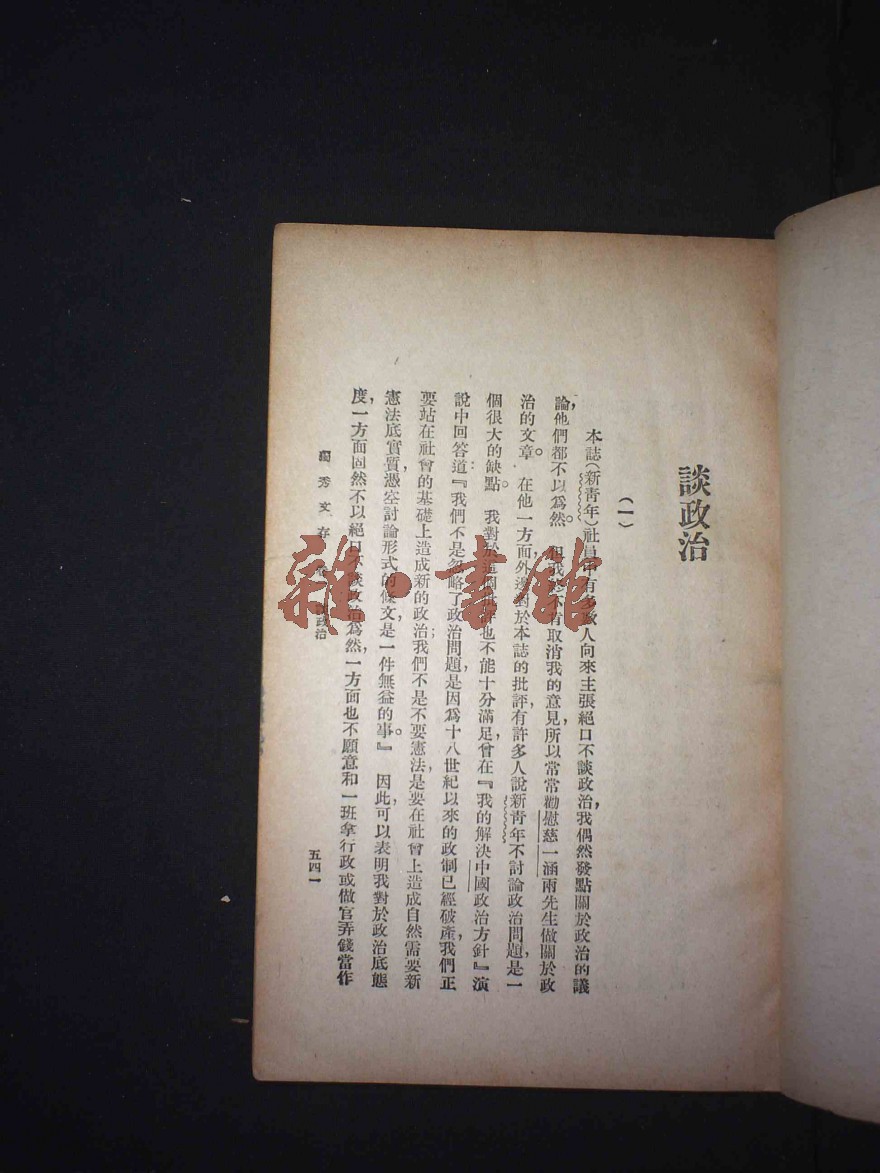 談政治
(一)
本誌(新青年)社員中有多數人向來主張絕口不談政治,我偶然發點關於政治的議
論,他們都不以爲然。但我終不肯取消我的意見,所以常常勸慰慈一涵兩先生做關於政
治的文章。在他一方面外邊對於本誌的批評,有許多人說新青年不討論政治問題,是一
個很大的缺點。我對於這個批評也不能十分滿足,曾在『我的解決中國政治方針』演
說中回答道:『我們不是忽略了政治問題,是因爲十八世紀以來的政制已經破產,我們正
要站在社會的基礎上造成新的政治;我們不是不要憲法,是要在社會上造成自然需要新
憲法底實質,憑空討論形式的條文,是一件無益的事。』因此,可以表明我對於政治底態
度,一方面固然不以絕口不談政治爲然,一方面也不願意和一班拿行政或做官弄錢當作
獨秀文存 政治
五四一
雜·書館